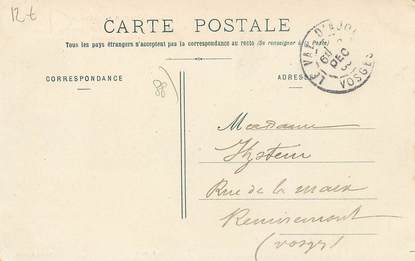 12€
CARTE POSTALE
Tous les pays étrangers n'acceptent pas la correspondance au recto (Se renseigner à la Poste)
CORRESPONDANCE
ADRESSE
88
LE VAL D'AJOL
DEC
VOSGES
Madame
Rue de la
Remiremont
(Vosges)